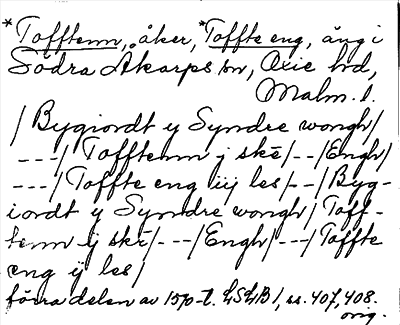 *Tofftenn, åker, *Toffte eng, äng i
Södra Åkarps sn, Oxie hd,
Malm. l.
/ Bygiordt y Syndre wongh/
---/ Tofftenn j skè/--/Engh/
---/ Toffte eng iij les/--/Byg-
iordt y Syndre wongh/ Toff-
tenn ij skè/---/Engh/---/Toffte
eng ij les/
förra delen av 1570-t. LSLB 1, ss. 407, 408.
orig.